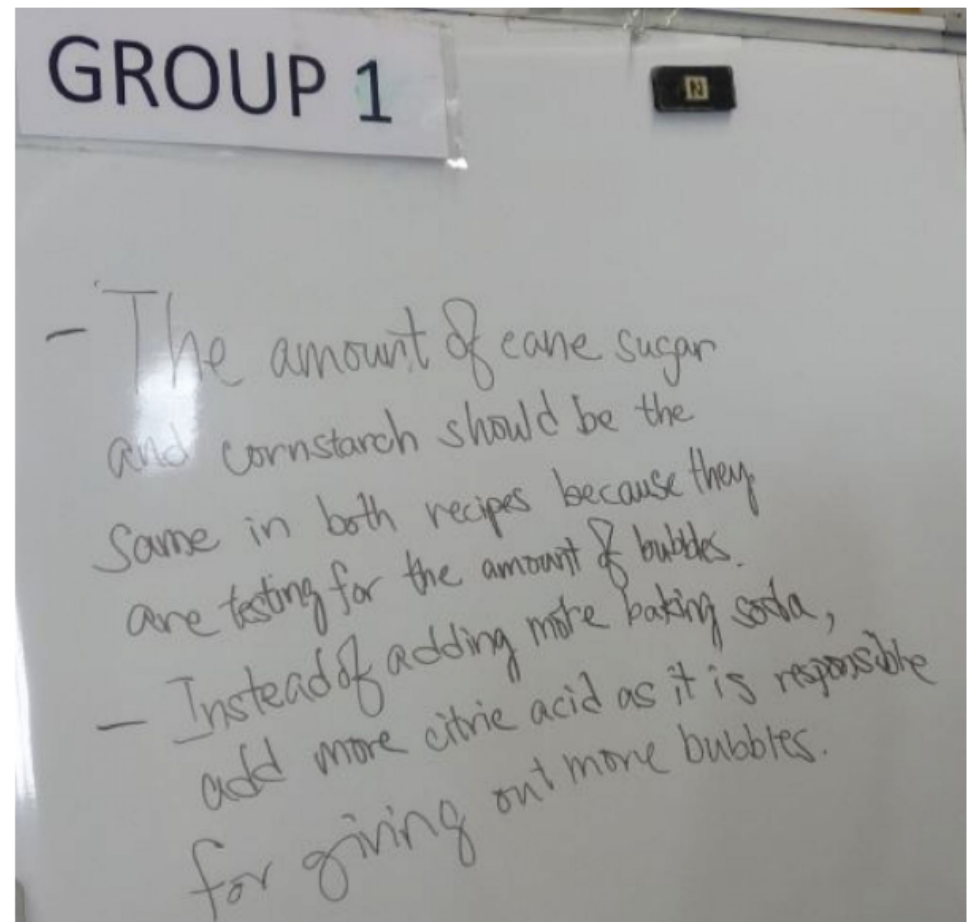 GROUP 1
N
- The amount of cane sugar
and cornstarch should be the
same in both recipes because they
are testing for the amount of bubbles.
- Instead of adding more baking soda,
add more citric acid as it is responsible
for giving out more bubbles.